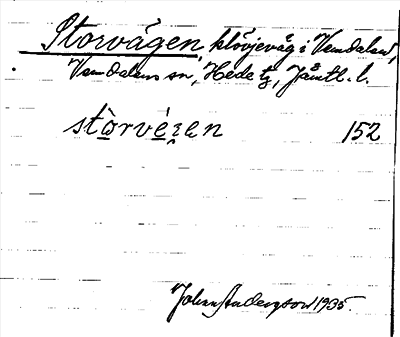 Storvägen, klövjeväg i Vemdalen,
Vemdalens sn, Hede tg, Jämtl. l.
stòrvé̱gen 152
Johan Andersson 1935.